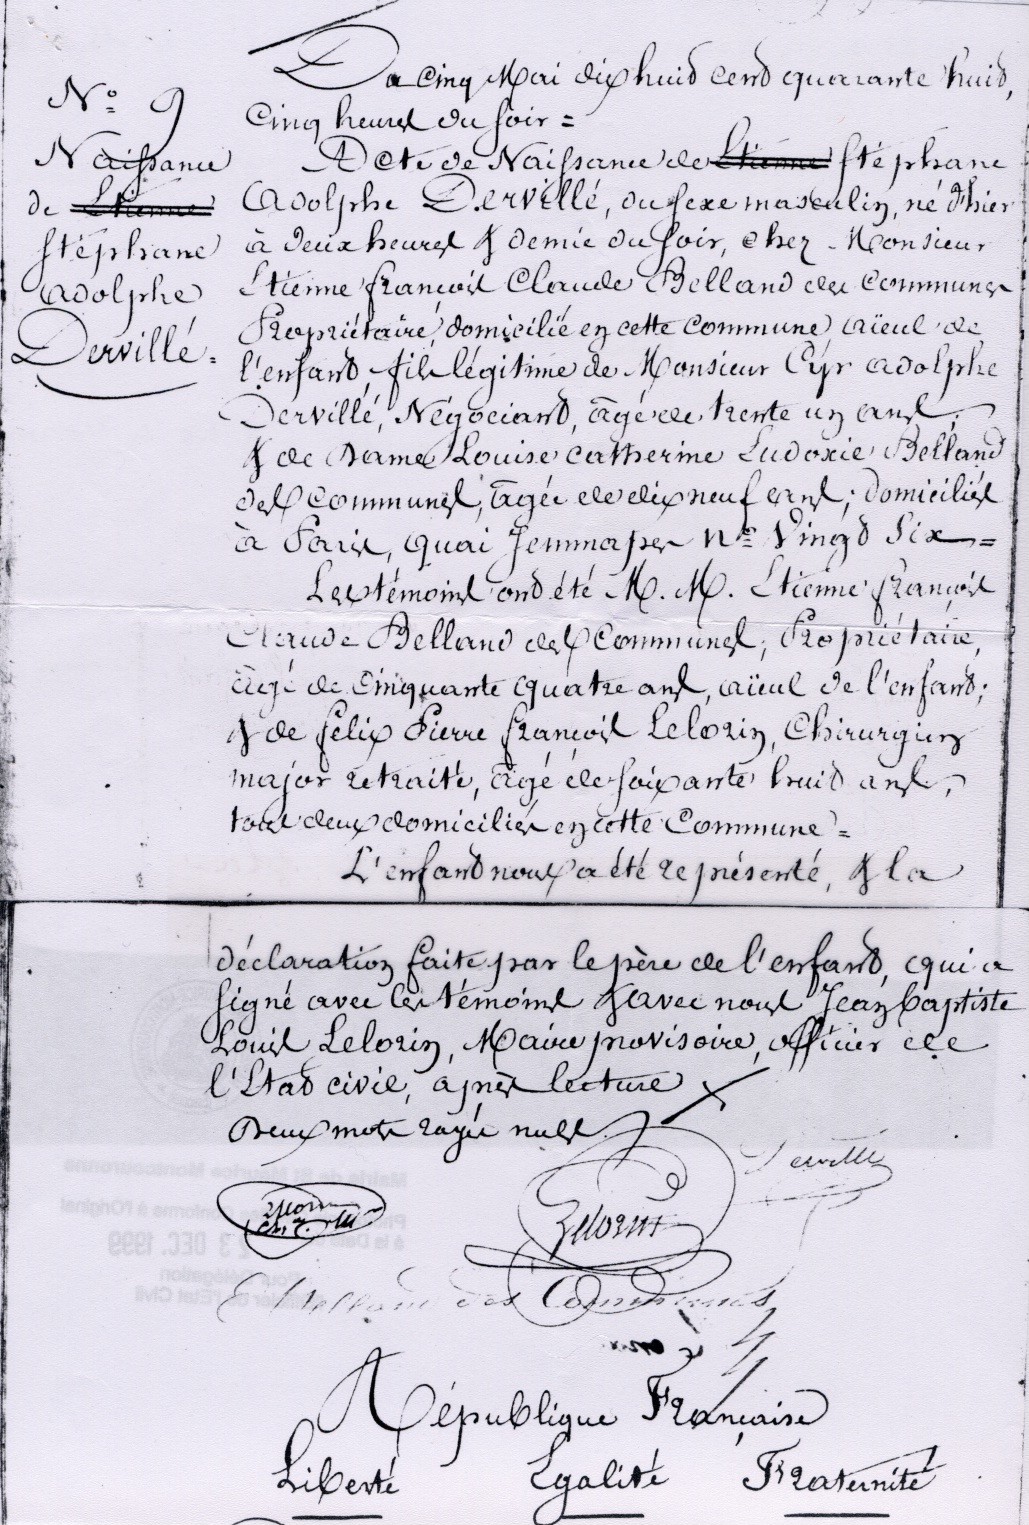 N° 9
Naissance
de Etienne
Stéphane
Adolphe
Dervillé.
Du cinq Mai dix huit cent quarante huit,
cinq heures du soir =
Acte de Naissance de Etienne Stéphane
Adolphe Dervillé, du sexe masculin, né d'hier
à deux heures & demie du soir, chez Monsieur
Etienne François Claude Belland des Communes
Propriétaire, domicilié en cette commune, aïeul de
l'enfant, fils légitime de Monsieur Cyr Adolphe
Dervillé, Négociant, âgé de trente un ans,
& de Dame Louise Catherine Ludoxie Belland
des Communes, âgée de dix neuf ans; domiciliés
à Paris, quai Jemmapes n° Vingt Six =
Les témoins ont été M. M. Etienne François
Claude Belland des Communes, Propriétaire,
âgé de cinquante quatre ans, aïeul de l'enfant;
& de Félix Pierre François Lelorin, Chirurgien
major retraité, âgé de soixante huit ans,
tous deux domiciliés en cette Commune =
L'enfant nous a été représenté, & la
déclaration faite par le père de l'enfant, qui a
signé avec les témoins & avec nous Jean Baptiste
Louis Lelorin, Maire provisoire, officier de
l'Etat civil, après lecture
Deux mots rayés nuls.
Dervillé
Lelorin
E Belland des Communes
Mairie de St Maurice Montcouronne
Conforme à l'Original
à la Date
3 DEC. 1999
Pour Délégation
l'Etat Civil
République Française
Liberté Egalité Fraternité